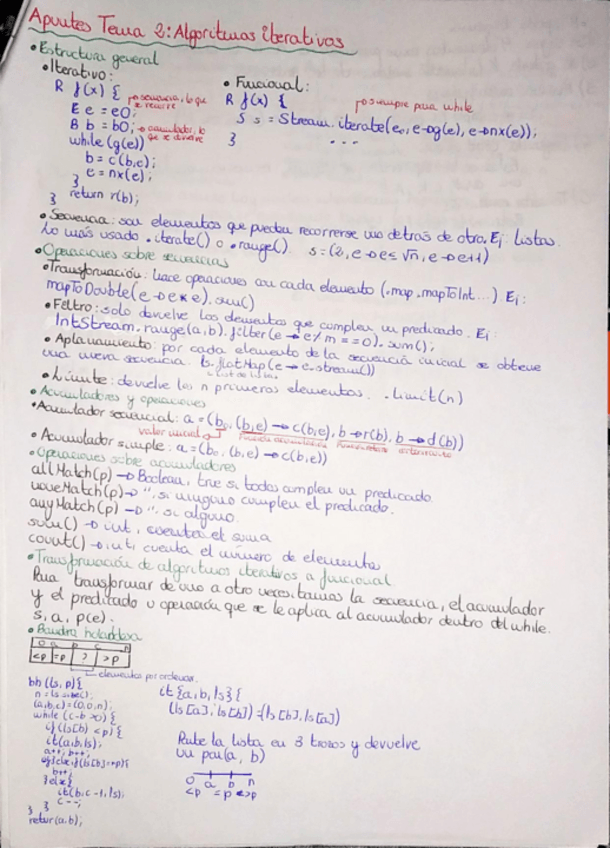 Apuntes Tema 2: Algoritmos iterativos
• Estructura general
• Iterativo:
R f(x) {
E e = e0;
→ secuencia, lo que se recorre
B b = b0;
→ acumulador, lo que se devuelve
while (g(e))
b = c(b,e);
e = nx(e);
}
return r(b);
}
• Funcional:
R f(x) {
→ siempre para while
S s = Stream.iterate(e0, e→g(e), e→nx(e));
...
}
• Secuencia: son elementos que pueden recorrerse uno detrás de otro. Ej: listas.
Lo más usado .iterate() o .range(). s=(2, e→e≤√n, e→e+1)
• Operaciones sobre secuencias
• Transformación: hace operaciones con cada elemento (.map, .mapToInt...). Ej:
mapToDouble(e→e*e).sum()
• Filtro: solo devuelve los elementos que cumplen un predicado. Ej:
IntStream.range(a,b).filter(e→e%m==0).sum();
• Aplanamiento: por cada elemento de la secuencia inicial se obtiene
una nueva secuencia. b.flatMap(e→e.stream())
• Límite: devuelve los n primeros elementos. .limit(n)
• Acumuladores y operaciones
• Acumulador secuencial: a=(b0,(b,e)→c(b,e), b→r(b), b→d(b))
valor inicial
• Acumulador simple: a=(b0,(b,e)→c(b,e))
• Operaciones sobre acumuladores
allMatch(p) → Boolean, true si todos cumplen un predicado
noneMatch(p) → ", si ninguno cumplen el predicado.
anyMatch(p) → ", si alguno.
sum() → int, la suma
count() → int, cuenta el número de elementos
• Transformación de algoritmos iterativos a funcional
Para transformar de uno a otro necesitamos la secuencia, el acumulador
y el predicado u operación que se le aplica al acumulador dentro del while.
s, a, p(e).
• Bandera holandesa
<p =p ? >p
elementos por ordenar.
bb(ls, p){
n = ls.size();
(a,b,c)=(0,0,n);
while (c-b>0) {
if(ls[b]<p){
it(a,b,ls);
a++; b++;
}else if(ls[b]==p){
b++;
}else{
it(b,c-1,ls);
c--;
}
}
retur(a,b);
it {a,b,ls} {
(ls[a], ls[b])=(ls[b], ls[a])
Parte la lista en 3 trozos y devuelve
un par(a, b)
0 a b n
<p =p >p